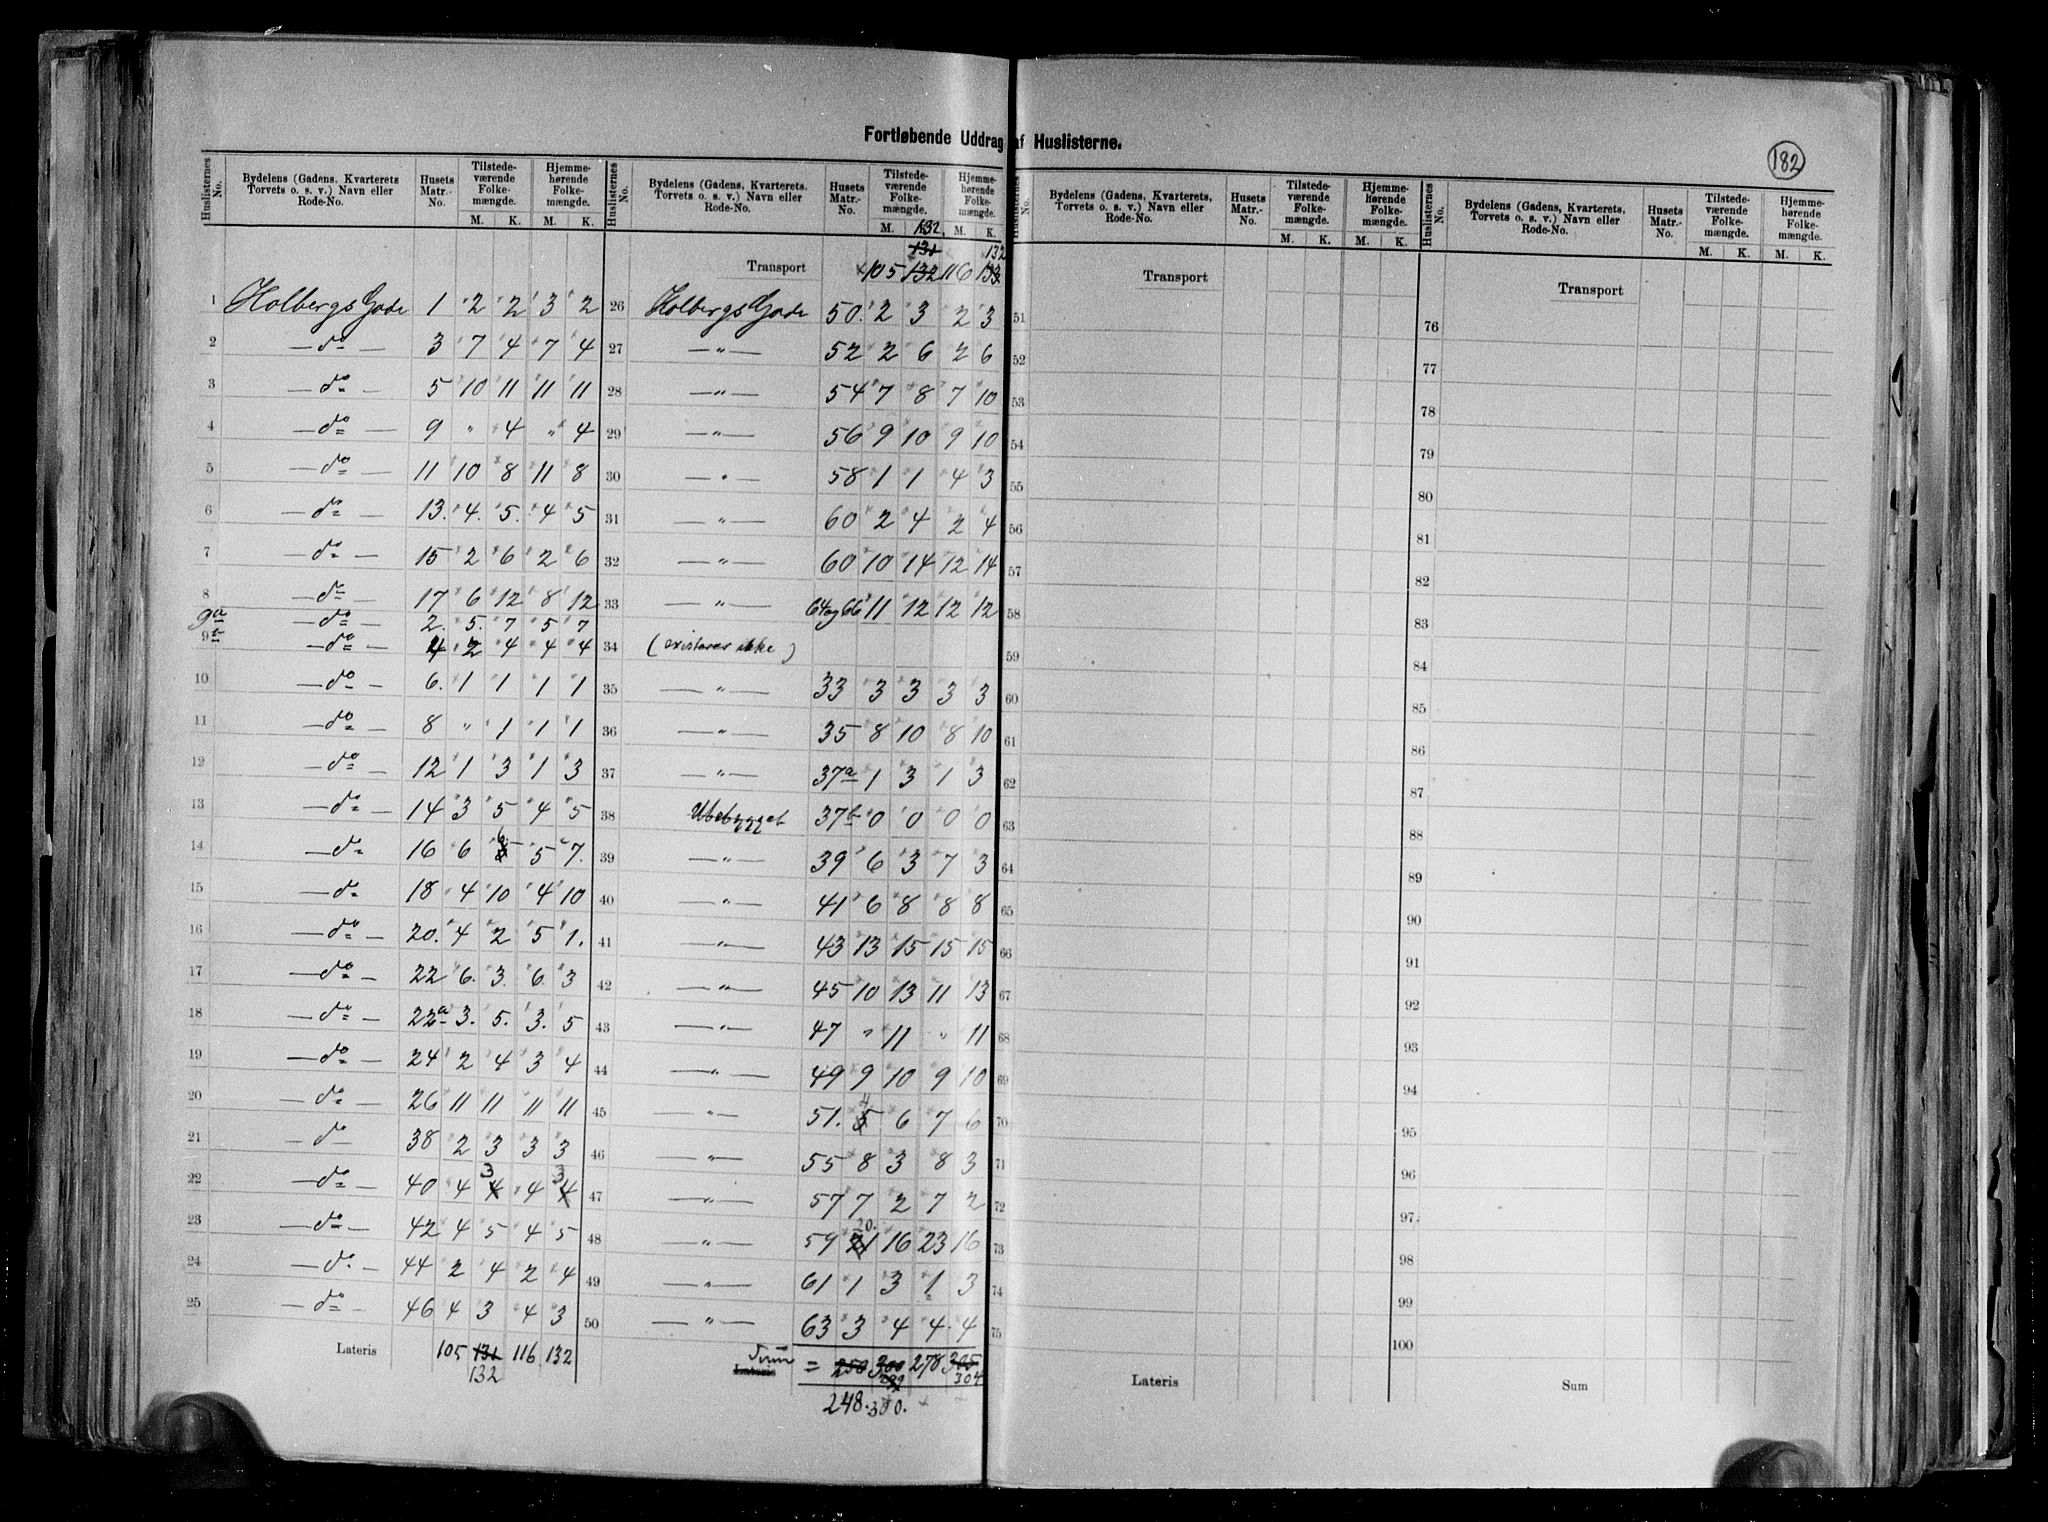 Fortløbende Uddrag af Huslisterne.
182
Huslisternes No. Bydelens (Gadens, Kvarterets Torvets o. s. v.) Navn eller Rode-No. Husets Matr.-No. Tilstedeværende Folkemængde. M. K. Hjemmehørende Folkemængde. M. K.
1 Holbergs Gade 1 2 2 3 2
2 —do— 3 7 4 7 4
3 —do— 5 10 11 11 11
4 —do— 9 " 4 " 4
5 —do— 11 10 8 11 8
6 —do— 13. 4. 5. 4 5
7 —do— 15 2 6 2 6
8 —do— 17 6 12 8 12
9a —do— 2. 5. 7 5 7
9b —do— 4 2 4 4 4
10 —do— 6. 1 1 1 1
11 —do— 8 " 1 1 1
12 —do— 12 1 3 1 3
13 —do— 14 3 5 4 5
14 —do 16 6 6 5 7.
15 —do 18 4 10 4 10
16 —do— 20. 4 2 5 1.
17 —do— 22 6. 3. 6. 3
18 —do— 22a 3. 5. 3. 5
19 —do— 24 2 4 3 4
20 —do— 26 11 11 11 11
21 —do— 38 2 3 3 3
22 —do— 40 4 4 3 4 4 3
23 —do— 42 4 5 4 5
24 —do— 44 2 4 2 4
25 —do— 46 4 3 4 3
Lateris 105 131 116 132
132
Huslisternes No. Bydelens (Gadens, Kvarterets. Torvets o. s. v.) Navn eller Rode-No. Husets Matr.-No. Tilstedeværende Folkemængde. M. K. Hjemmehørende Folkemængde. M. K.
132
131 132
Transport 105 132 116 133
26 Holbergs Gade 50. 2 3 2 3
27 —"— 52 2 6 2 6
28 —"— 54 7 8 7 10
29 —"— 56 9 10 9 10
30 —"— 58 1 1 4 3
31 —"— 60 2 4 2 4
32 —"— 60 10 14 12 14
33 —"— 64 og 66 11 12 12 12
34 (existerer ikke)
35 —"— 33 3 3 3 3
36 —"— 35 8 10 8 10
37 —"— 37a 1 3 1 3
38 Ubebygget 37b 0 0 0 0
39 —"— 39 6 3 7 3
40 —"— 41 6 8 8 8
41 —"— 43 13 15 15 15
42 —"— 45 10 13 11 13
43 —"— 47 " 11 " 11
44 —"— 49 9 10 9 10
45 —"— 51. 5 4 6 7 6
46 —"— 55 8 3 8 3
47 —"— 57 7 2 7 2
48 —"— 59 21 20. 16 23 16
49 —"— 61 1 3 1 3
50 —"— 63 3 4 4 4
Lateris = 250 300 278 305
299 304
248. 300.
Huslisternes No. Bydelens (Gadens, Kvarterets, Torvets o. s. v.) Navn eller Rode-No. Husets Matr.-No. Tilstedeværende Folkemængde. M. K. Hjemmehørende Folkemængde. M. K.
Transport
51
52
53
54
55
56
57
58
59
60
61
62
63
64
65
66
67
68
69
70
71
72
73
74
75
Lateris
Huslisternes No. Bydelens (Gadens, Kvarterets, Torvets o. s. v.) Navn eller Rode-No. Husets Matr.-No. Tilstedeværende Folkemængde. M. K. Hjemmehørende Folkemængde. M. K.
Transport
76
77
78
79
80
81
82
83
84
85
86
87
88
89
90
91
92
93
94
95
96
97.
98
99
100
Sum